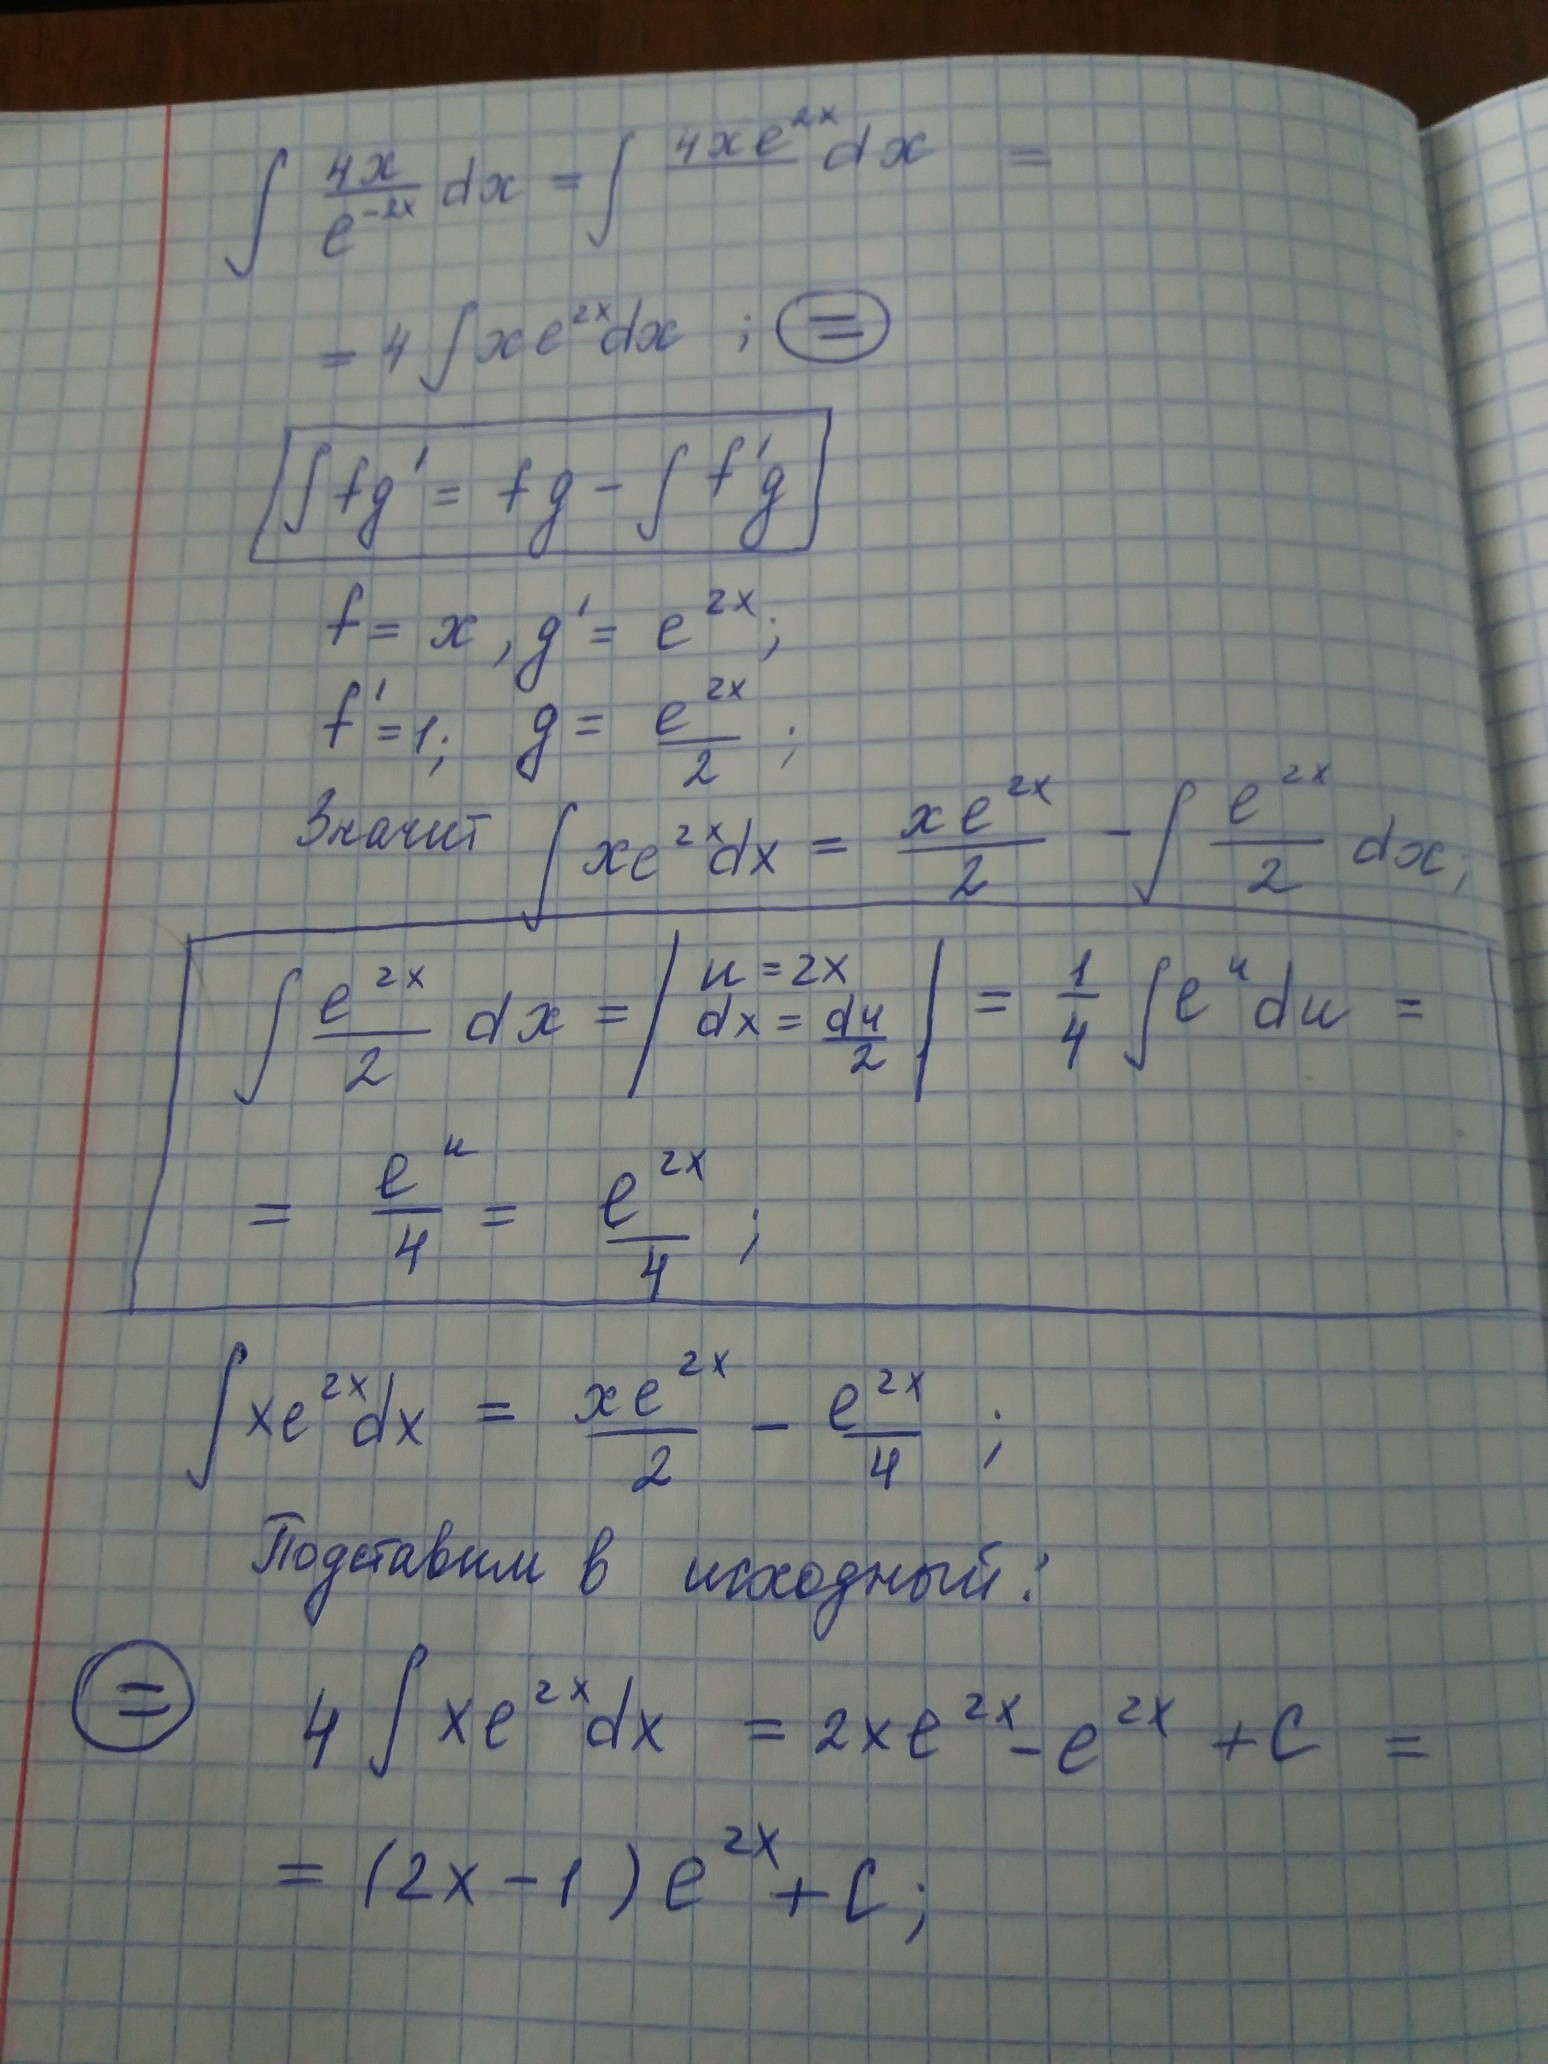 ∫ 4x/e^(-2x) dx = ∫ 4xe^(2x) dx =
= 4 ∫ xe^(2x) dx ; (=)
∫ fg' = fg - ∫ f'g
f = x, g' = e^(2x);
f' = 1; g = e^(2x)/2 ;
Значит ∫ xe^(2x) dx = xe^(2x)/2 - ∫ e^(2x)/2 dx;
∫ e^(2x)/2 dx = | u = 2x dx = du/2 | = 1/4 ∫ e^u du =
= e^u/4 = e^(2x)/4 ;
∫ xe^(2x) dx = xe^(2x)/2 - e^(2x)/4 ;
Подставим в исходный:
(=) 4 ∫ xe^(2x) dx = 2xe^(2x) - e^(2x) + C =
= (2x - 1) e^(2x) + C;